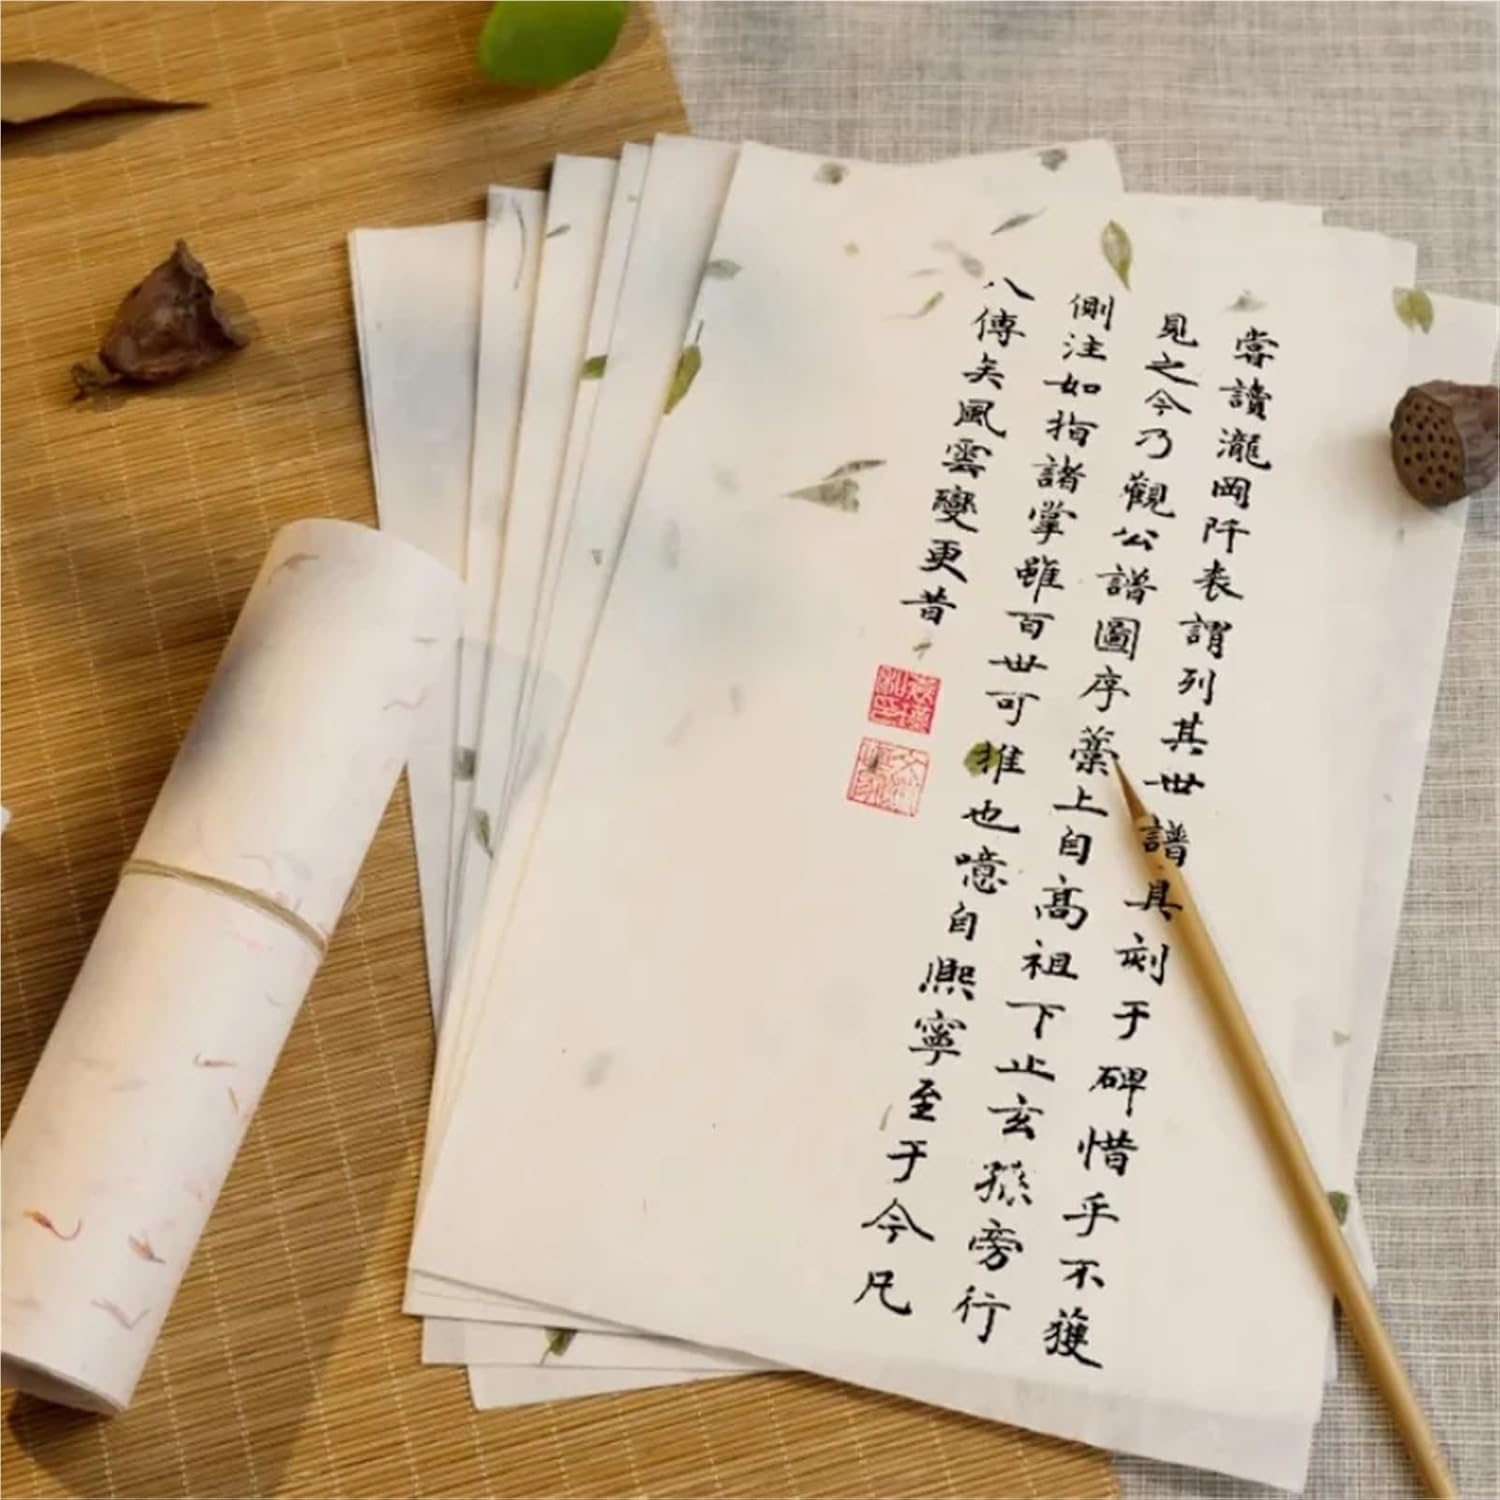 嘗讀瀧岡阡表謂列其世譜具刻于碑惜乎不獲
見之今乃觀公譜圖序藁上自高祖下止玄孫旁行
側注如指諸掌雖百世可推也噫自熈寧至于今凡
八傳矣風雲變更昔